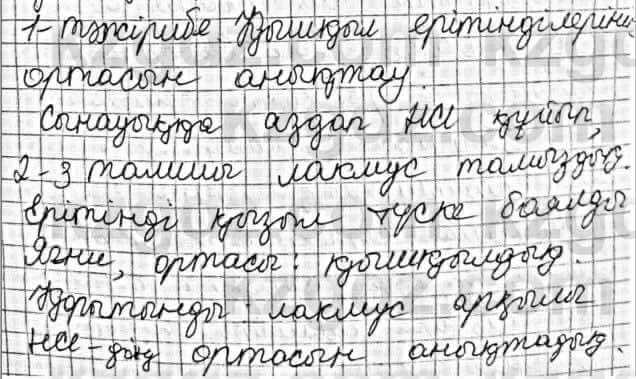 1-тәжірибе. Қышқыл ерітінділерінің
ортасын анықтау.
Сынауыққа аздап HCl құйып,
2-3 тамшы лакмус тамыздық.
Ерітінді қызыл түске баялды
Яғни, ортасы: қышқылдық.
Қорытынды: лакмус арқылы
HCl-дің ортасын анықтадық.